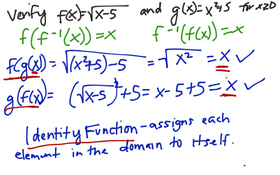 Verify f(x)=√x-5 and g(x)=x²+5 for x≥0
f(f⁻¹(x))=x f⁻¹(f(x))=x
f(g(x))=√(x²+5)-5 = √x² = x ✓
g(f(x))= (√x-5)²+5 = x-5+5 = x ✓
Identity Function - assigns each
element in the domain to itself.